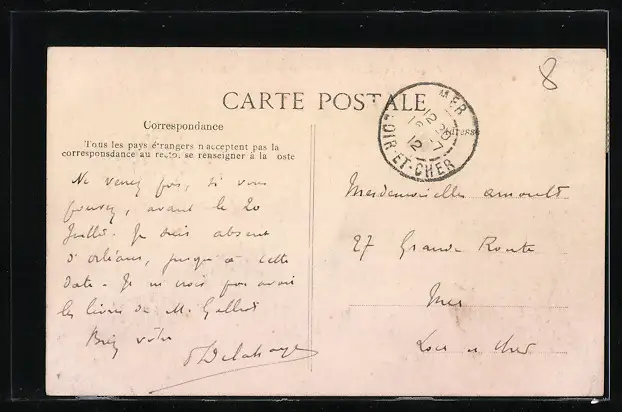 8
CARTE POSTALE
Correspondance
Tous les pays étrangers n acceptent pas la
corresponsdance au recto, se renseigner à la oste
Adresse
MER
12 30
18 -7
12
LOIR-ET-CHER
Ne venez pas, si vous
pouvez, avant le 20
Juillet. Je serai absent
d'orléans, jusqu'à cette
date. Je ne crois pas avoir
les livres de M.
Bien vôtre
Delahaye
Mesdemoiselles arnoult
27 Grande Route
Mer
Loir et Cher